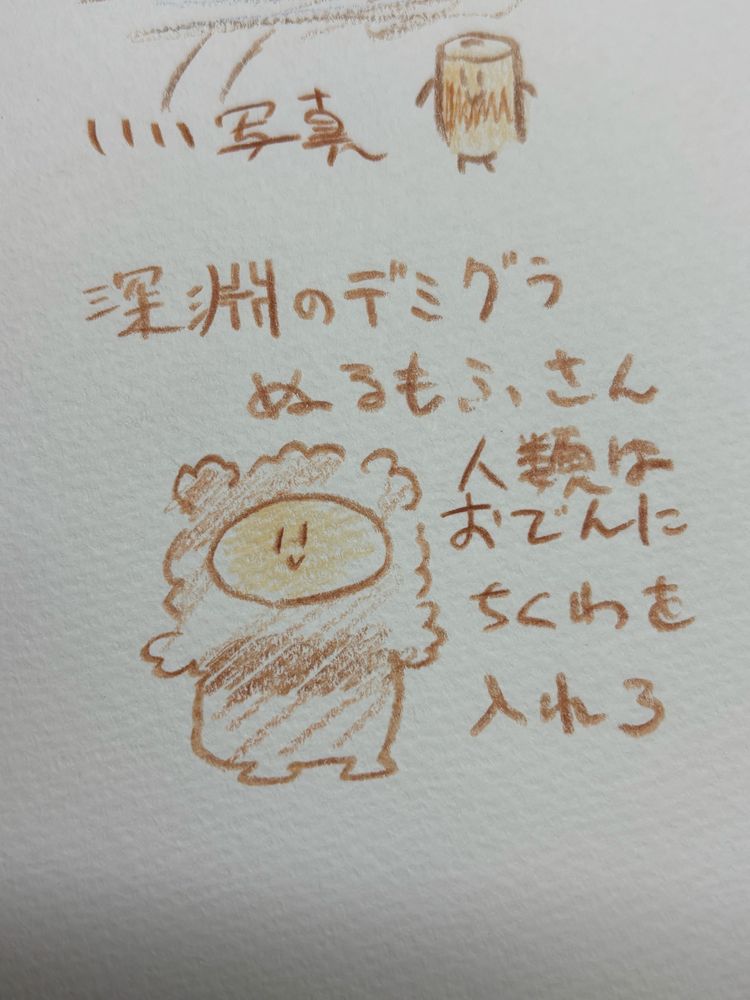 いい写真
深淵のデミグラ
ぬるもふさん
人類は
おでんに
ちくわを
入れろ